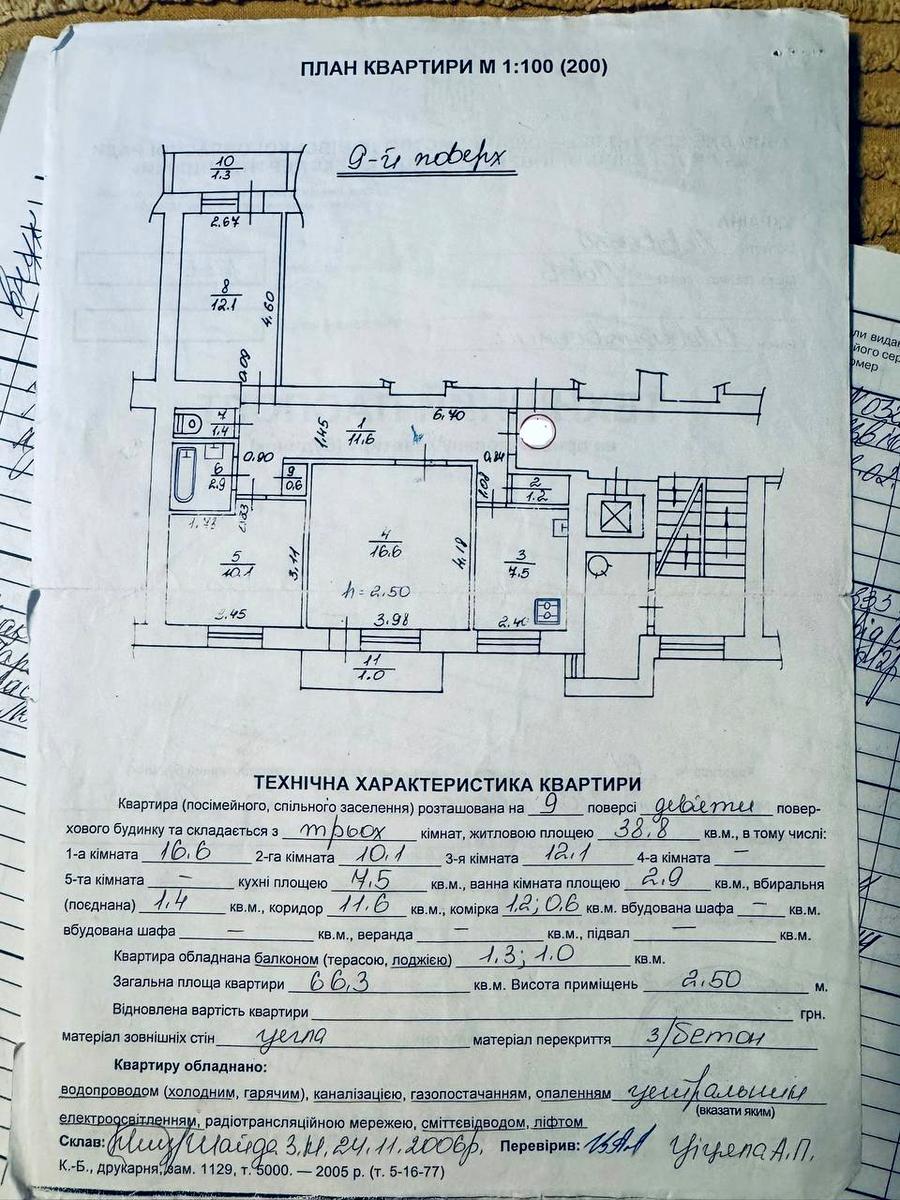 ПЛАН КВАРТИРИ М 1:100 (200)
9-й поверх
10
1.3
2.67
8
12.1
4.60
0.09
6.70
7
1.4
1
11.6
1.45
0.90
0.84
6
2.9
9
0.6
1.08
2
1.2
1.73
2.33
4
16.6
4.18
3
7.5
5
10.1
3.11
h = 2.50
3.45
3.98
2.40
11
1.0
ТЕХНІЧНА ХАРАКТЕРИСТИКА КВАРТИРИ
Квартира (посімейного, спільного заселення) розташована на 9 поверсі девяти повер-
хового будинку та складається з трьох кімнат, житловою площею 38.8 кв.м., в тому числі:
1-а кімната 16.6 2-га кімната 10.1 3-я кімната 12.1 4-а кімната –
5-та кімната – кухні площею 7.5 кв.м., ванна кімната площею 2.9 кв.м., вбиральня
(поєднана) 1.4 кв.м., коридор 11.6 кв.м., комірка 1.2; 0.6 кв.м. вбудована шафа – кв.м.
вбудована шафа – кв.м., веранда – кв.м., підвал – кв.м.
Квартира обладнана балконом (терасою, лоджією) 1.3; 1.0 кв.м.
Загальна площа квартири 66.3 кв.м. Висота приміщень 2.50 м.
Відновлена вартість квартири грн.
матеріал зовнішніх стін цегла матеріал перекриття з/бетон
Квартиру обладнано:
водопроводом (холодним, гарячим), каналізацією, газопостачанням, опаленням центральним
(вказати яким)
електроосвітленням, радіотрансляційною мережею, сміттєвідводом, ліфтом
Склав: Шайда З.Н. 24.11.2006р. Перевірив: Ціцяпа А.П.
К.-Б., друкарня, зам. 1129, т. 5000. — 2005 р. (т. 5-16-77)